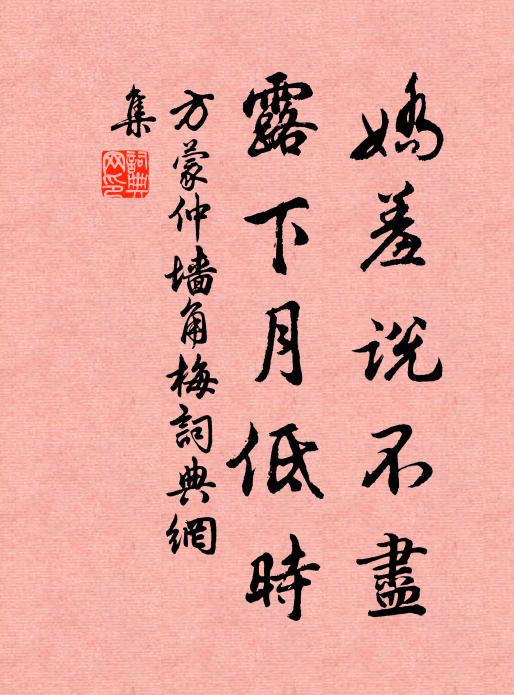 嬌羞説不盡
露下月低時
方蒙仲墙角梅詞典網
集
詞典
网印